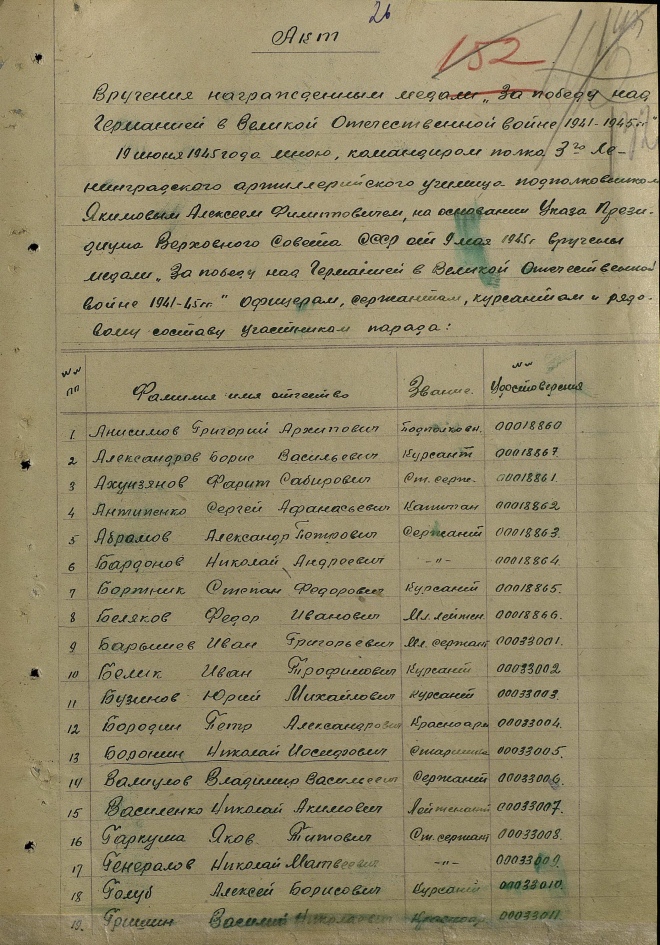 26
Акт
152
Вручения награжденным медали „За победу над
Германией в Великой Отечественной войне 1941-1945гг"
19 июня 1945 года мною, командиром полка 3го Ле-
нинградского артиллерийского училища подполковником
Якимовым Алексеем Филипповичем, на основании Указа Прези-
диума Верховного Совета СССР от 9 мая 1945г вручены
медали „За победу над Германией в Великой Отечественной
войне 1941-45гг" офицерам, сержантам, курсантам и рядо-
вому составу участникам парада:
№№ пп Фамилия имя отчество Звание. №№ Удостоверения
1 Анисимов Григорий Архипович Подполковн. 00018860
2 Александров Борис Васильевич Курсант 00018867.
3 Ахунзянов Фарит Сабирович Ст. серж. 00018861.
4 Антипенко Сергей Афанасьевич Капитан 00018862
5 Абрамов Александр Петрович Сержант 00018863.
6 Бардонов Николай Андреевич -"- 00018864.
7 Бортник Степан Федорович Курсант 00018865.
8 Беляков Федор Иванович Мл. лейтен. 00018866.
9 Барышев Иван Григорьевич Мл. сержант 00033001.
10 Белик Иван Трофимович Курсант 00033002
11 Бузинов Юрий Михайлович курсант 00033003.
12 Бородин Петр Александрович Красноарм 00033004.
13 Боронин Николай Иосифович Старшина 00033005.
14 Вамулов Владимир Васильевич Сержант 00033006.
15 Василенко Николай Акимович Лейтенант 00033007.
16 Гаркуша Яков Титович Ст. сержант 00033008.
17 Генералов Николай Матвеевич -"- 00033009.
18 Голуб Алексей Борисович Курсант 00033010.
19. Гришин Василий Николаевич Красноар. 00033011.